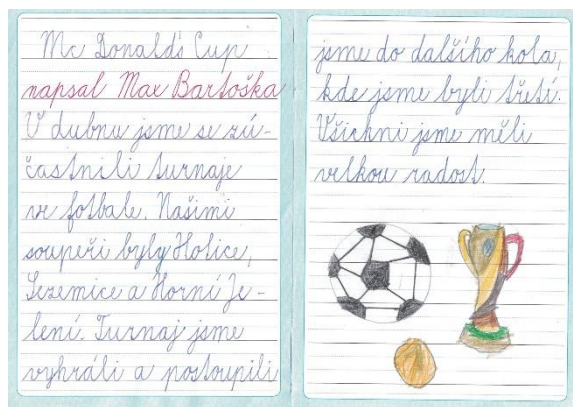 Mc Donald's Cup
napsal Max Bartoška
V dubnu jsme se zú-
častnili turnaje
ve fotbale. Našimi
soupeři byly Holice,
Sezemice a Horní Je-
lení. Turnaj jsme
vyhráli a postoupili
jsme do dalšího kola,
kde jsme byli třetí.
Všichni jsme měli
velkou radost.